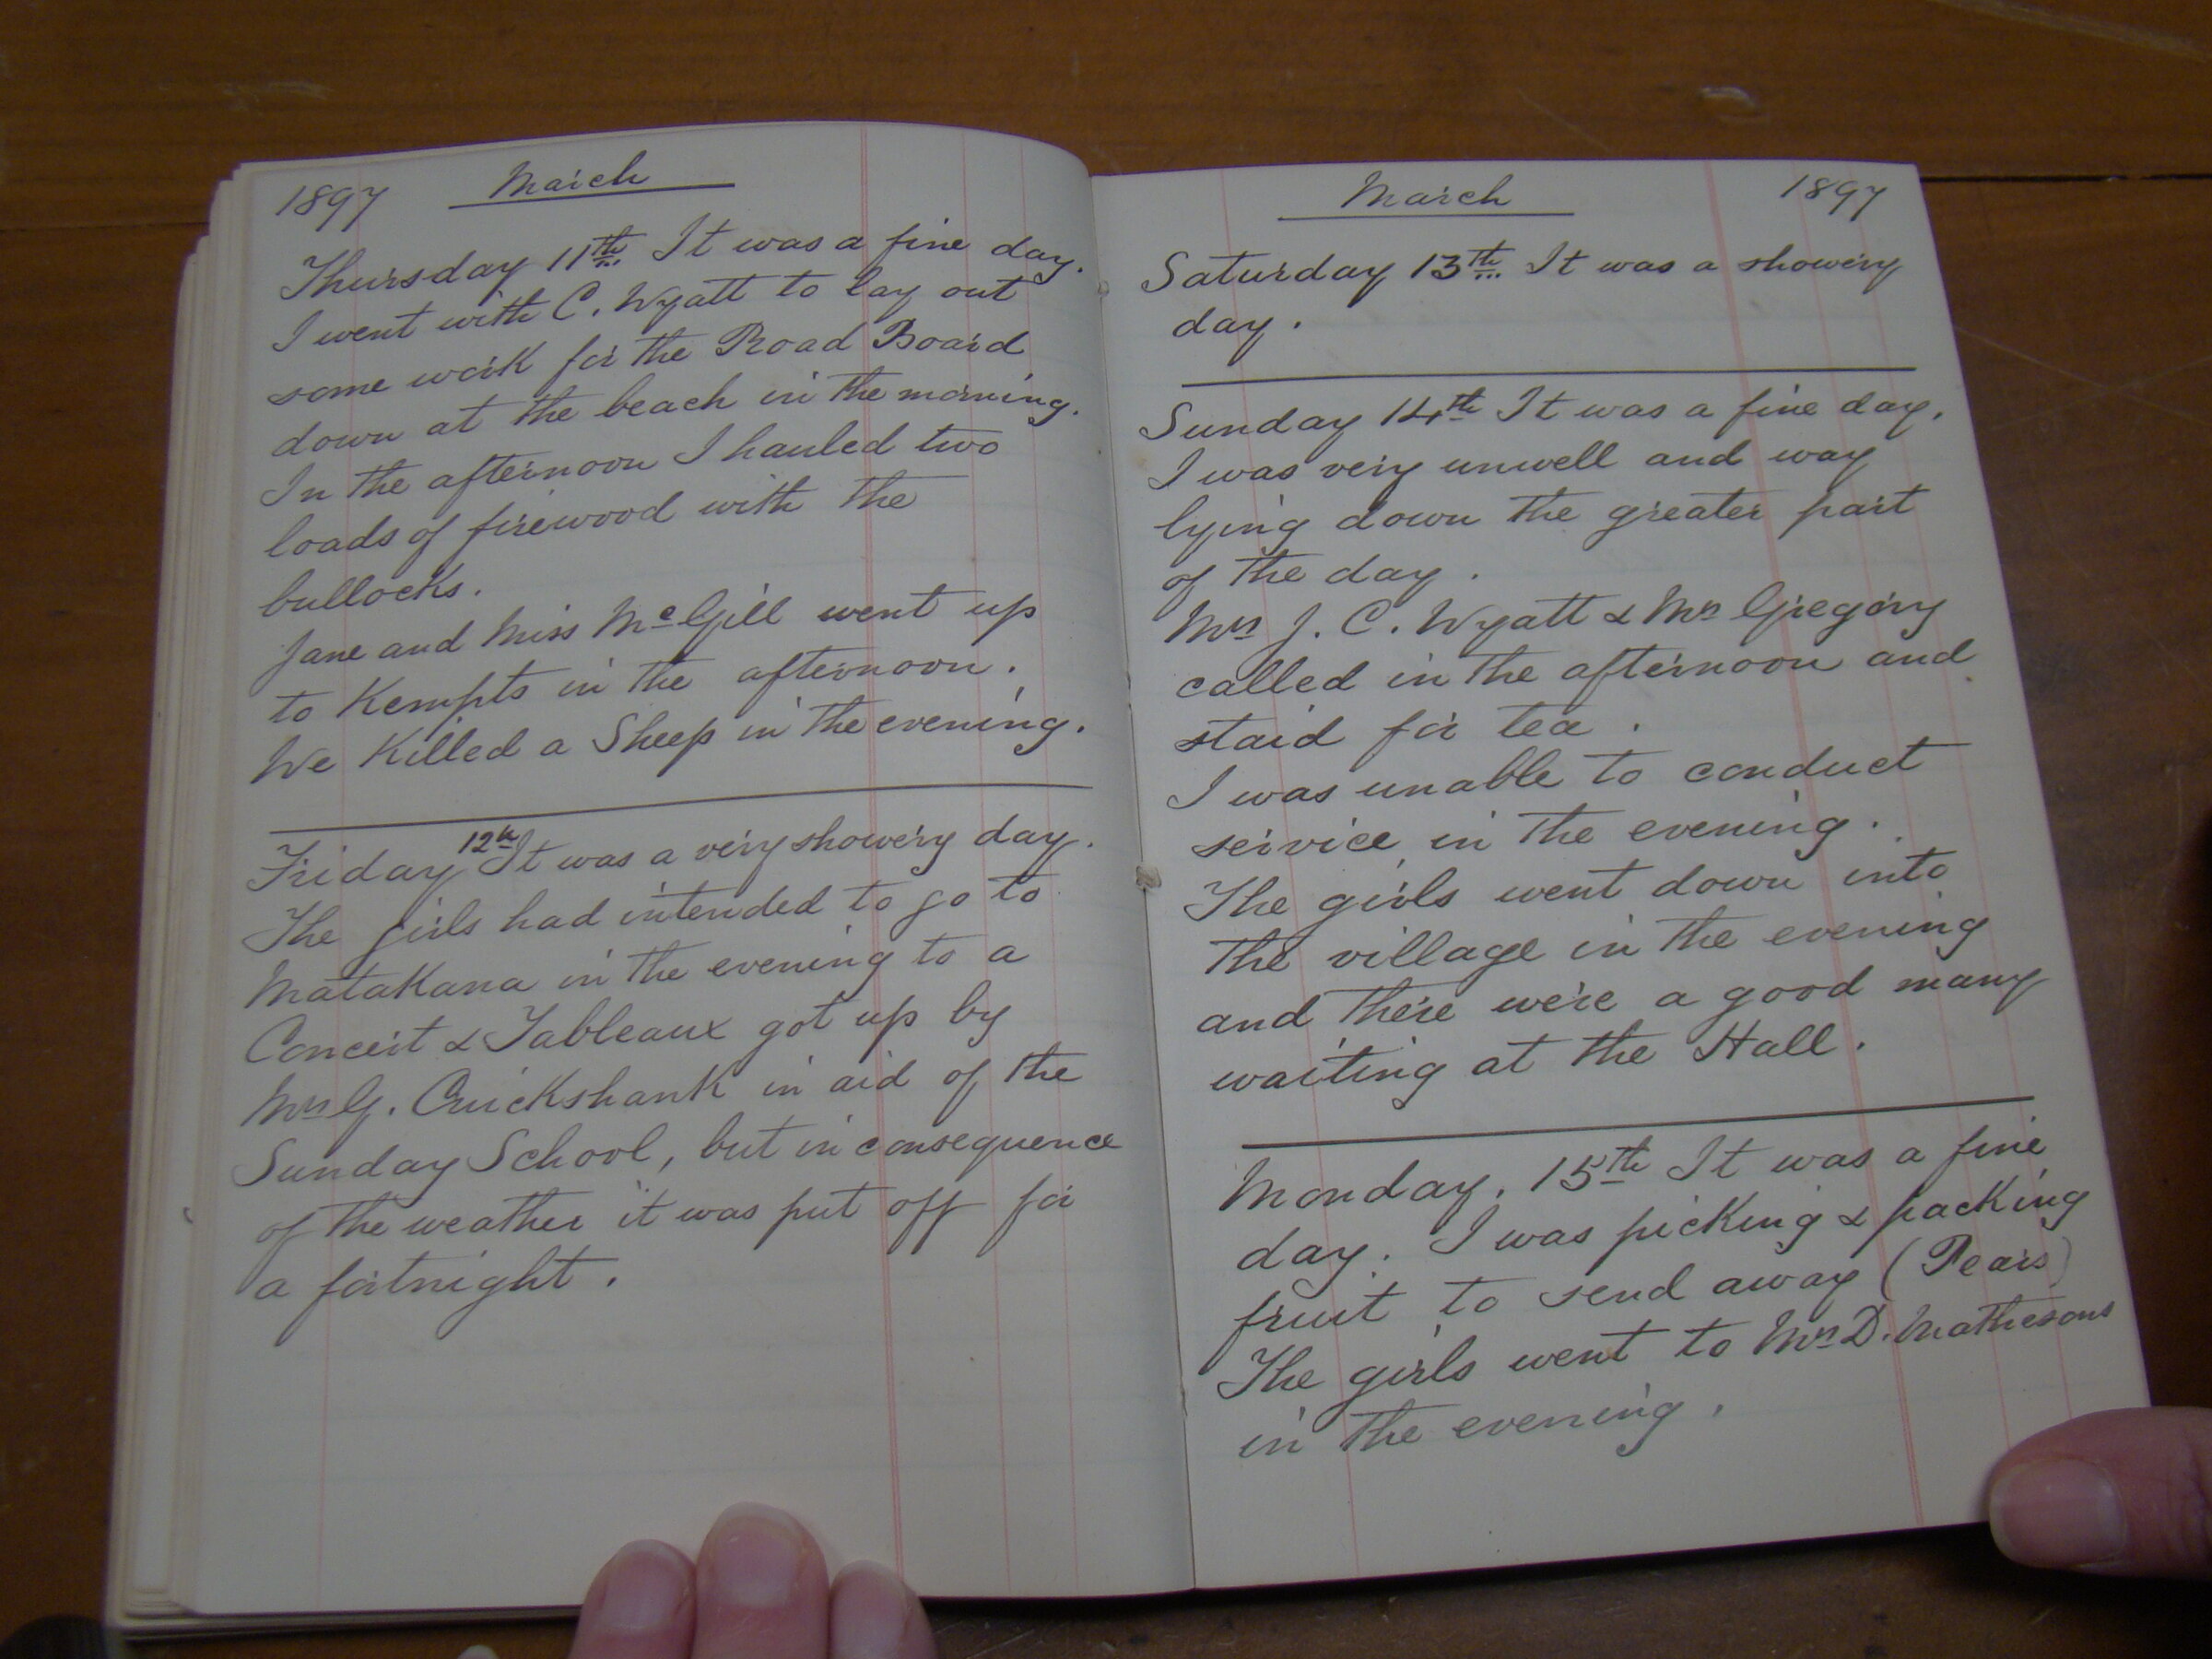 1897 March
Thursday 11th It was a fine day.
I went with C. Wyatt to lay out
some work for the Road Board
down at the beach in the morning.
In the afternoon I hauled two
loads of firewood with the
bullocks.
Jane and Miss McGill went up
to Kempts in the afternoon.
We Killed a Sheep in the evening.
Friday 12th It was a very showery day.
The girls had intended to go to
Matakana in the evening to a
Concert & Tableaux got up by
Mrs G. Cruickshank in aid of the
Sunday School, but in consequence
of the weather it was put off for
a fortnight.
March 1897
Saturday 13th It was a showery
day.
Sunday 14th It was a fine day.
I was very unwell and way
lying down the greater part
of the day.
Mrs J. C. Wyatt & Mrs Gregory
called in the afternoon and
staid for tea.
I was unable to conduct
service in the evening.
The girls went down into
the village in the evening
and there were a good many
waiting at the Hall.
Monday, 15th It was a fine
day. I was picking & packing
fruit to send away (Pears)
The girls went to Mrs D. Mathesons
in the evening.